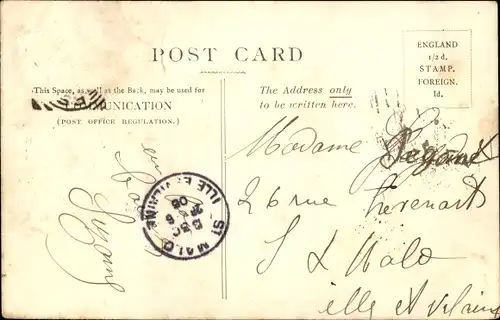 POST CARD
This Space, as well as the Back, may be used for
COMMUNICATION
(POST OFFICE REGULATION.)
The Address only
to be written here.
ENGLAND
1/2 d.
STAMP.
FOREIGN.
1d.
Suzanne
ST MALO
ILLE ET VILAINE
Madame
26 rue
S t Malo
ille et vilaine